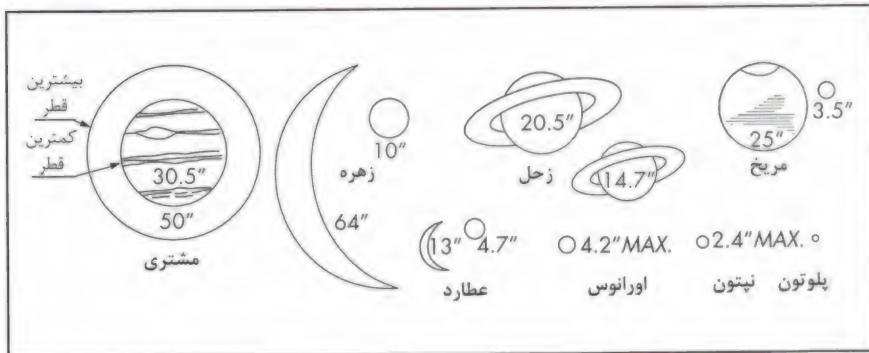 بیشترین
قطر
کمترین
قطر
30.5″
50″
مشتری
10″
زهره
64″
20.5″
زحل
14.7″
3.5″
25″
مریخ
13″ 4.7″
عطارد
4.2″MAX.
اورانوس
2.4″MAX.
نپتون
پلوتون